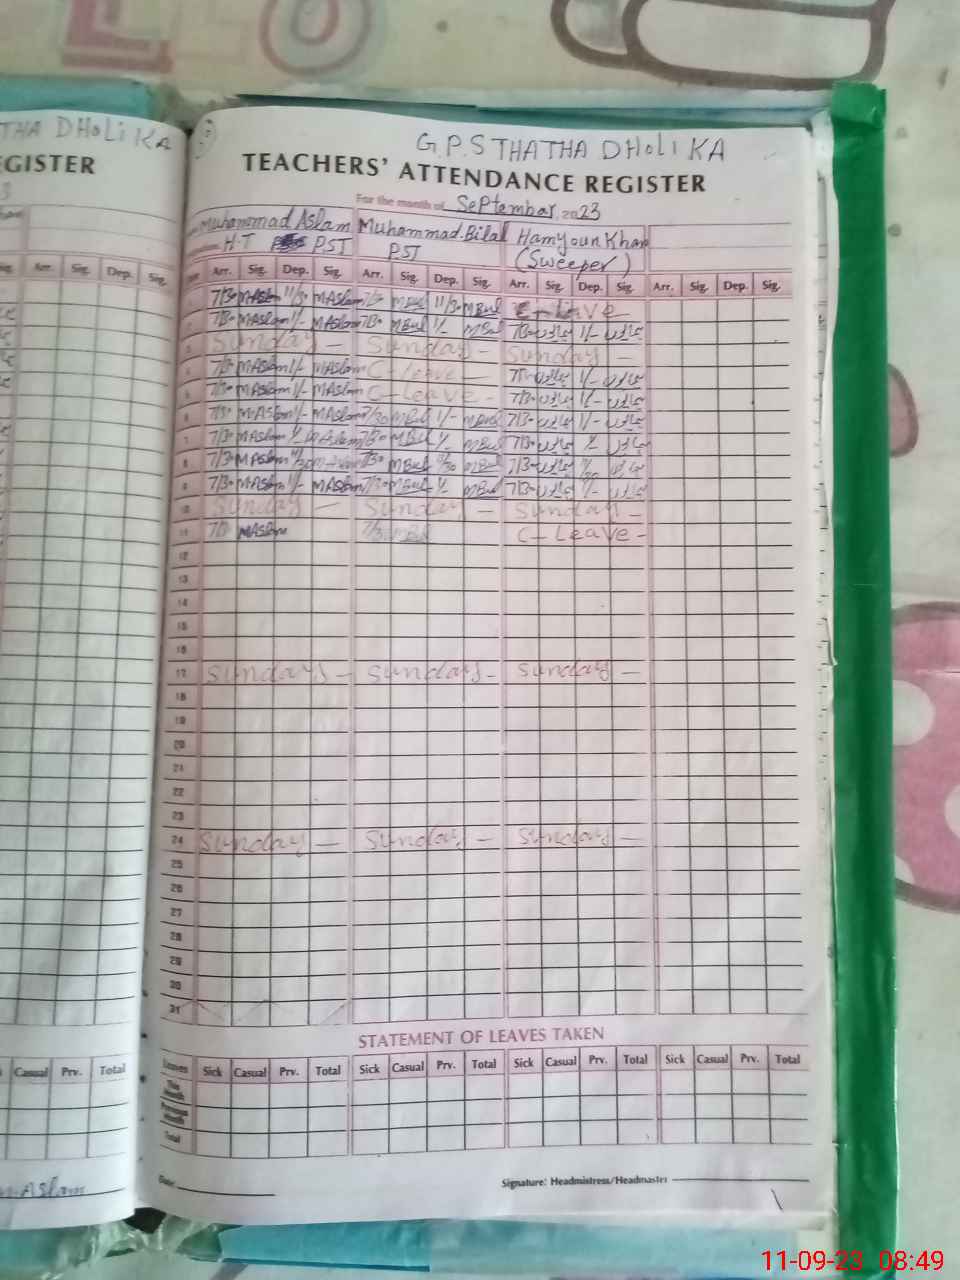 THA DHOLIKA
GISTER
G.P.S THATHA DHOLIKA
TEACHERS' ATTENDANCE REGISTER
For the month of SePtembar, 2023
Muhammad Aslam Muhammad.Bilal Hamyoun Khan
H-T PST PST (Sweeper)
Arr. Sig. Dep. Sig. Arr. Sig. Dep. Sig. Arr. Sig. Dep. Sig. Arr. Sig. Dep. Sig.
1 7/30 MAslam 11/30 MAslam 7/30 MBul 11/30 MBul
2 7/30 MAslam 1/- MAslam 7/30 MBul 1/- MBul 7/30 1/-
3 Sunday - Sunday - Sunday -
4 7/30 MAslam 1/- MAslam C-Leave - 7/30 1/-
5 7/30 MAslam 1/- MAslam C-Leave - 7/30 1/-
6 7/30 MAslam 1/- MAslam 7/30 MBul 1/- MBul 7/30 1/-
7 7/30 MAslam 1/- MAslam 7/30 MBul 1/- MBul 7/30 1/-
8 7/30 MAslam 11/30 7/30 MBul 11/30 MBul 7/30
9 7/30 MAslam 1/- MAslam 7/30 MBul 1/- MBul 7/30 1/-
10 Sunday - Sunday - Sunday -
11 7/30 MAslam 7/30 MBul C-Leave -
12
13
14
15
16
17 Sunday - Sunday - Sunday -
18
19
20
21
22
23
24 Sunday - Sunday - Sunday -
25
26
27
28
29
30
31
STATEMENT OF LEAVES TAKEN
Leaves Sick Casual Prv. Total Sick Casual Prv. Total Sick Casual Prv. Total Sick Casual Prv. Total
Casual Prv. Total
This Month
Previous Month
Total
M.Aslam
Date:
Signature: Headmistress/Headmaster
11-09-23 08:49